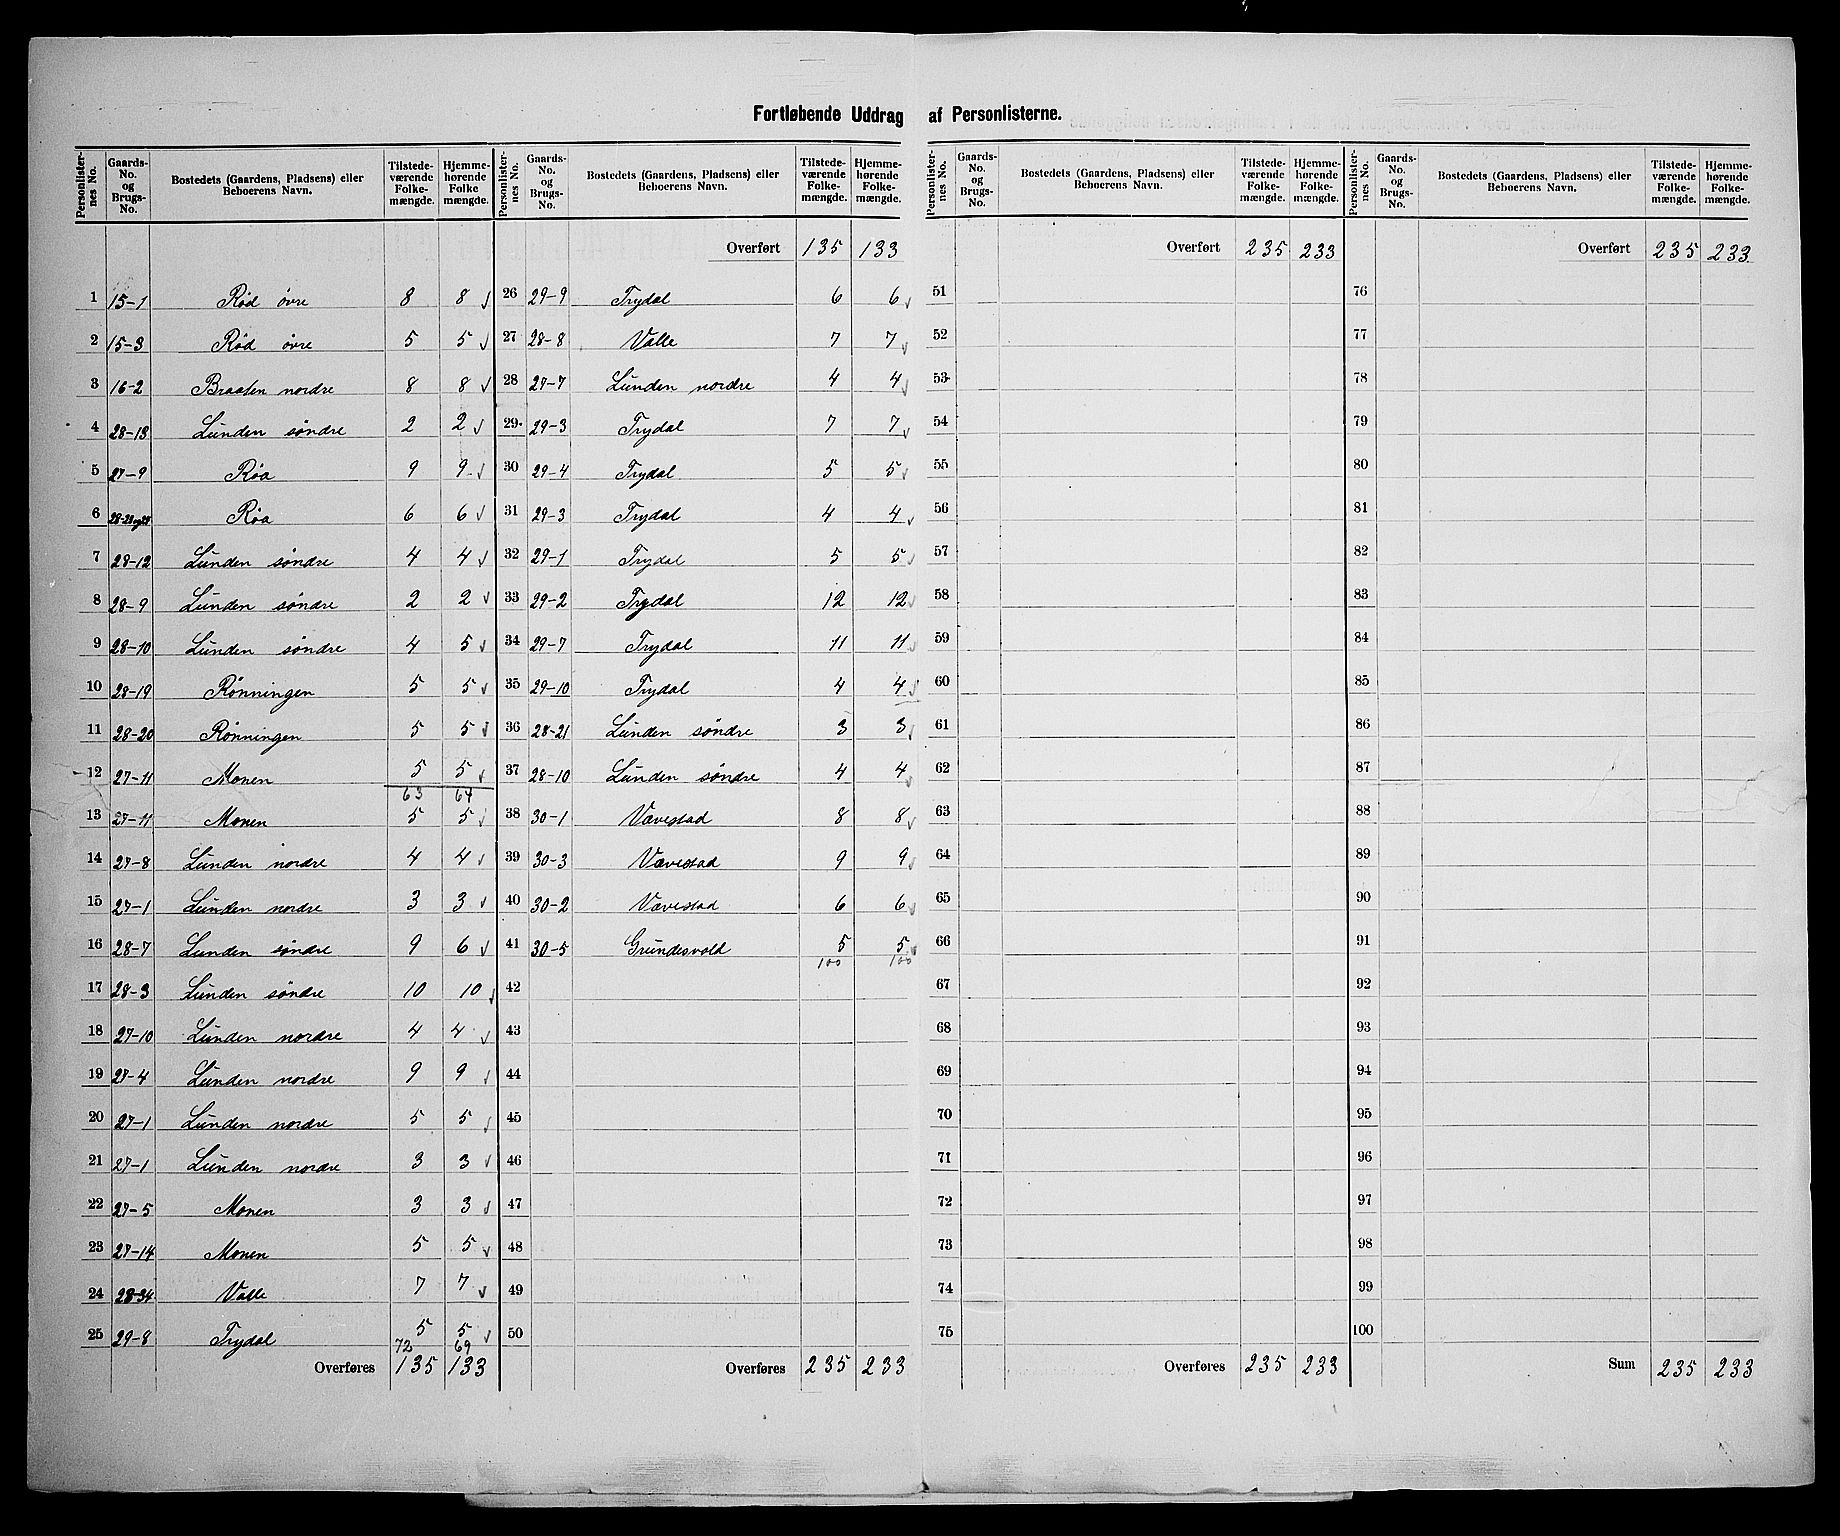 Fortløbende Uddrag af Personlisterne.
Personlister-nes No. | Gaards-No. og Brugs-No. | Bostedets (Gaardens, Pladsens) eller Beboerens Navn. | Tilstede-værende Folke-mængde. | Hjemme-hørende Folke mængde.
1 15-1 Rød øvre 8 8
2 15-3 Rød øvre 5 5
3 16-2 Braaten nordre 8 8
4 28-13 Lunden søndre 2 2
5 27-9 Røa 9 9
6 Røa 6 6
7 28-12 Lunden søndre 4 4
8 28-9 Lunden søndre 2 2
9 28-10 Lunden søndre 4 5
10 28-19 Rønningen 5 5
11 28-20 Rønningen 5 5
12 27-11 Monen 5 5
63 64
13 27-11 Monen 5 5
14 27-8 Lunden nordre 4 4
15 27-1 Lunden nordre 3 3
16 28-7 Lunden søndre 9 6
17 28-3 Lunden søndre 10 10
18 27-10 Lunden nordre 4 4
19 27-4 Lunden nordre 9 9
20 27-1 Lunden nordre 5 5
21 27-1 Lunden nordre 3 3
22 27-5 Monen 3 3
23 27-14 Monen 5 5
24 28-34 Valle 7 7
25 29-8 Trydal 5 5
72 69
Overføres 135 133
Personlister-nes No. | Gaards-No. og Brugs-No. | Bostedets (Gaardens, Pladsens) eller Beboerens Navn. | Tilstede-værende Folke-mængde. | Hjemme-hørende Folke-mængde.
Overført 135 133
26 29-9 Trydal 6 6
27 28-8 Valle 7 7
28 27-7 Lunden nordre 4 4
29 29-3 Trydal 7 7
30 29-4 Trydal 5 5
31 29-3 Trydal 4 4
32 29-1 Trydal 5 5
33 29-2 Trydal 12 12
34 29-7 Trydal 11 11
35 29-10 Trydal 4 4
36 28-21 Lunden søndre 3 3
37 28-10 Lunden søndre 4 4
38 30-1 Vævestad 8 8
39 30-3 Vævestad 9 9
40 30-2 Vævestad 6 6
41 30-5 Grundesvold 5 5
100 100
42
43
44
45
46
47
48
49
50
Overføres 235 233
Personlister-nes No. | Gaards-No. og Brugs-No. | Bostedets (Gaardens, Pladsens) eller Beboerens Navn. | Tilstede-værende Folke-mængde. | Hjemme-hørende Folke-mængde.
Overført 235 233
51
52
53
54
55
56
57
58
59
60
61
62
63
64
65
66
67
68
69
70
71
72
73
74
75
Overføres 235 233
Personlister-nes No. | Gaards-No. og Brugs-No. | Bostedets (Gaardens, Pladsens) eller Beboerens Navn. | Tilstede-værende Folke-mængde. | Hjemme-hørende Folke-mængde.
Overført 235 233
76
77
78
79
80
81
82
83
84
85
86
87
88
89
90
91
92
93
94
95
96
97
98
99
100
Sum 235 233